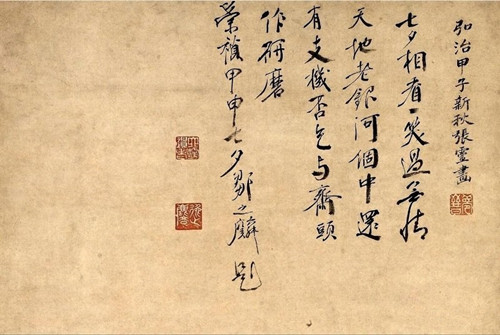 弘治甲子新秋張靈畫
七夕相看一笑過無情
天地老銀河個中還
有支機否乞与齋頭
作研磨
崇禎甲申七夕鄒之麟題